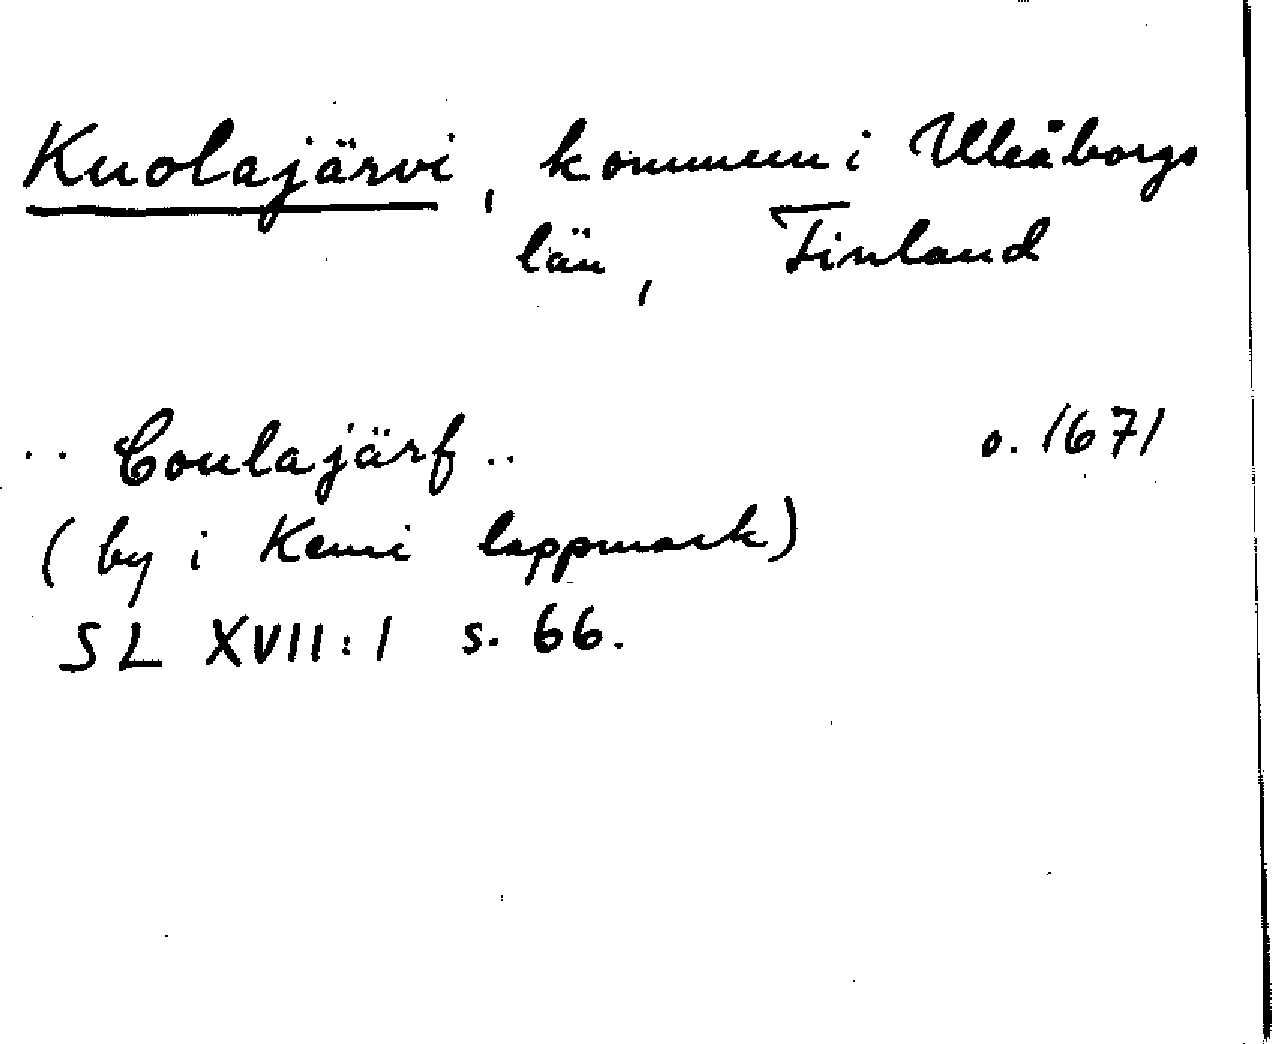 Kuolajärvi, kommun i Uleåborgs
län, Finland
.. Coulajärf .. o. 1671
(by i Kemi lappmark)
SL XVII:1 s. 66.